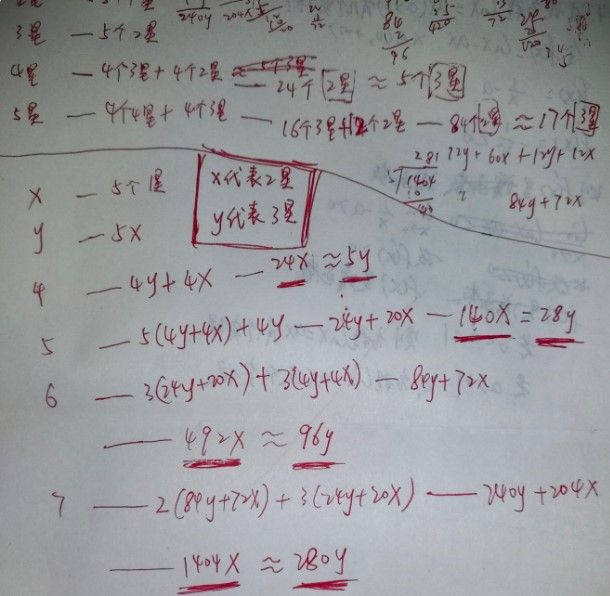 240y 204X
3星 — 5个2星
4星 — 4个3星 + 4个2星 — 24个2星 ≈ 5个3星
5星 — 4个4星 + 4个3星 — 16个3星+ 个2星 — 84个2星 ≈ 17个3星
84
12
96
281
5√1404
72y + 60x + 12y + 12x
84y + 72x
x — 5个1星
x代表2星
y代表3星
y — 5X
4 — 4y + 4X — 24X ≈ 5y
5 — 5(4y+4x) + 4y — 24y + 20X — 140X = 28y
6 — 3(24y+20X) + 3(4y+4X) — 84y + 72X
— 492X ≈ 96y
7 — 2(84y+72X) + 3(24y+20X) — 240y + 204X
— 1404X ≈ 280y